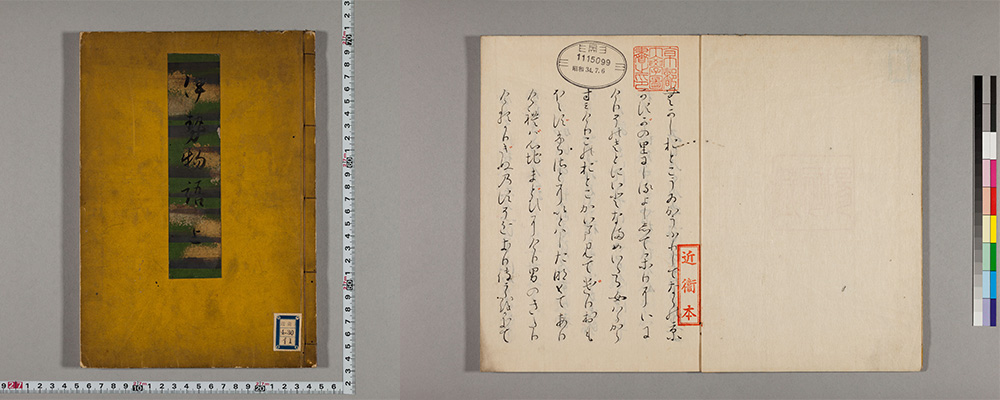 伊勢物語 上
1115099
昭和 34.7.6
近衛本
むかしおとこうゐかうふりしてならの京
かすかの里にしるよししてかりにいに
けりそのさとにいとなまめいたる女はらから
すみけりこのおとこかいまみてけりおも
ほえすふるさとにいとはしたなくてあり
けれは心地まとひにけり男のきたり
けるかりきぬのすそをきりて